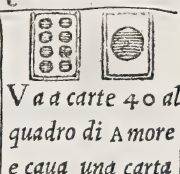 Va a carte 40 al
quadro di Amore
e caua una carta